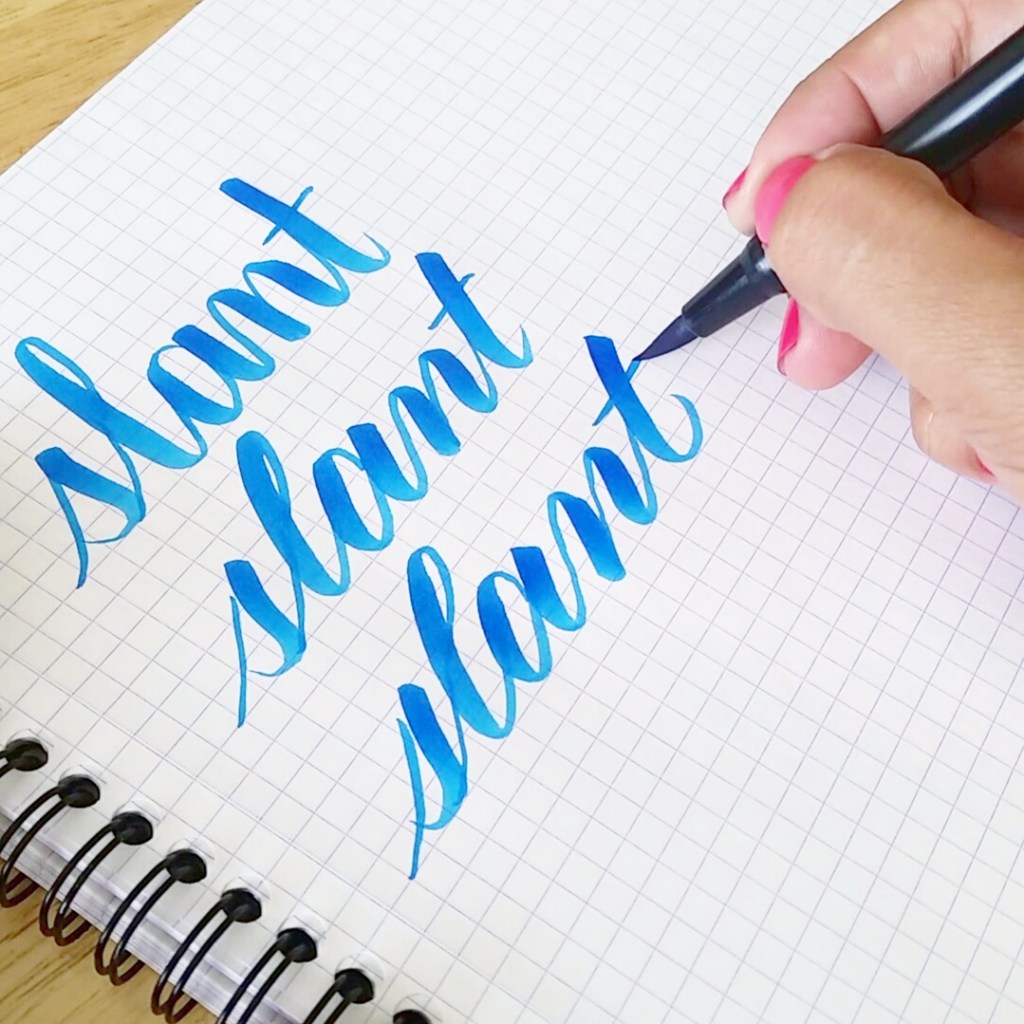 slant
slant
slant